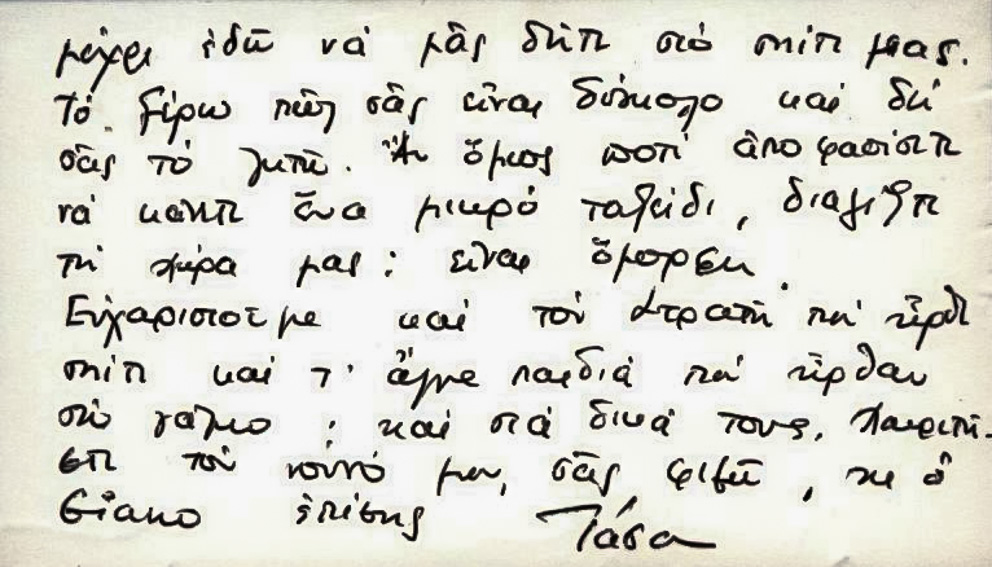 μέχρι ἐδῶ νά μᾶς δῆτε στό σπίτι μας.
Τό ξέρω πώς σᾶς εἶναι δύσκολο καί δέ
σᾶς τό ζητῶ. Ἄν ὅμως ποτέ ἀποφασίσετε
νά κάνετε ἕνα μικρό ταξείδι, διαλέξτε
τή χώρα μας: εἶναι ὄμορφη.
Εὐχαριστοῦμε καί τόν Στρατῆ πού ἦρθε
σπίτι καί τ' ἄλλα παιδιά πού ἦρθαν
στό γάμο: καί στά δικά τους. Χαιρετή-
στε τόν νουνό μου, σᾶς φιλῶ, κι ὁ
ἐπίσης Τάσα